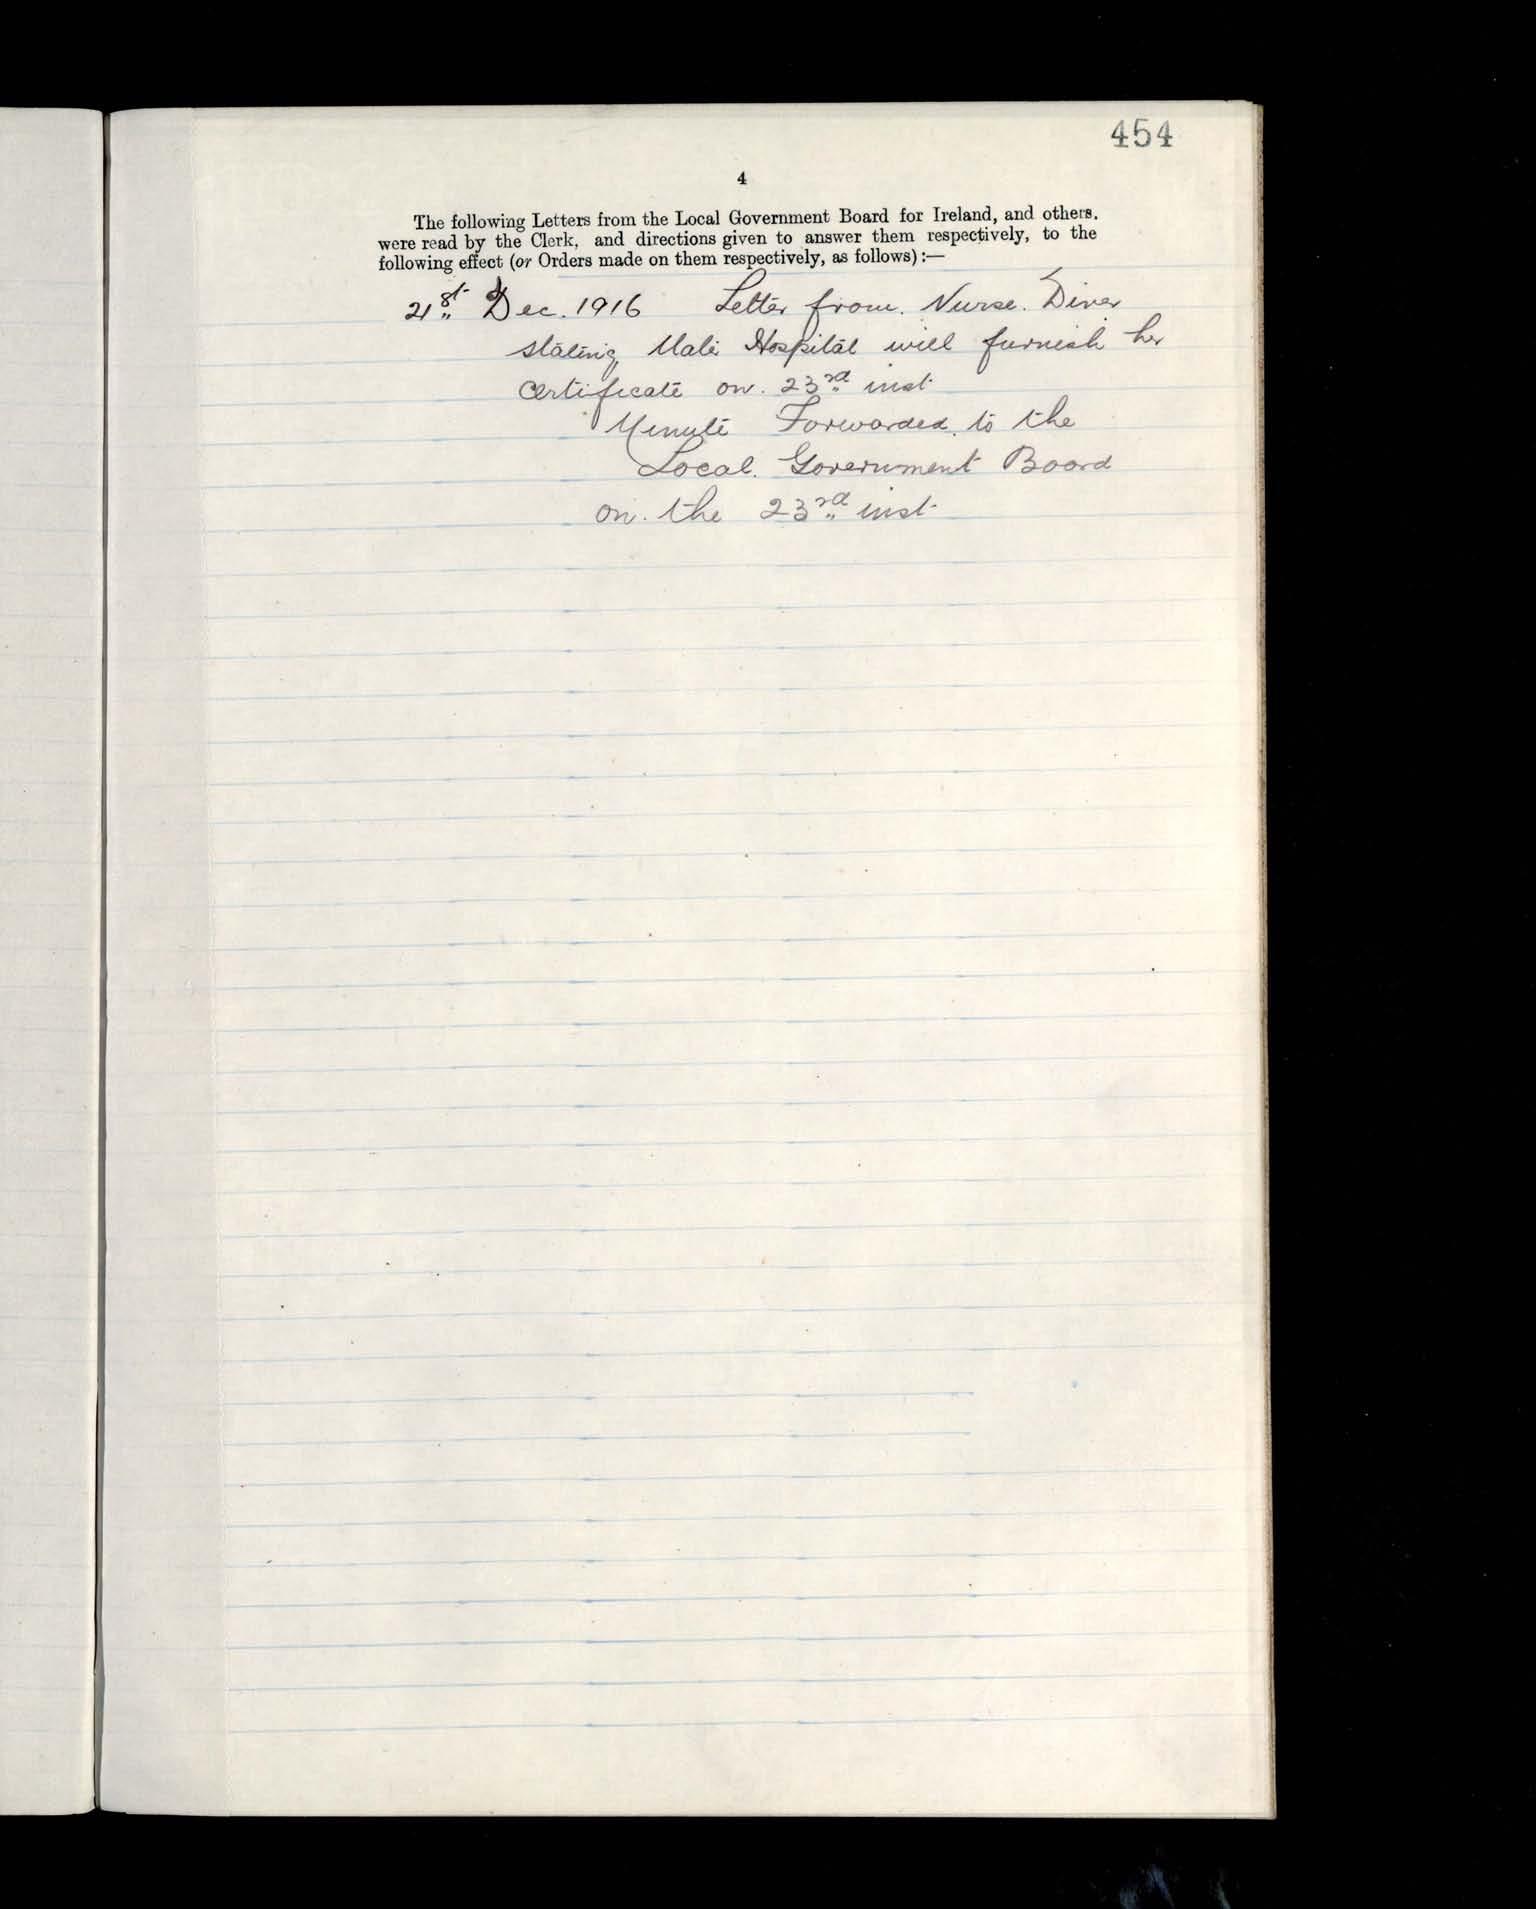 454
4
The following Letters from the Local Government Board for Ireland, and others.
were read by the Clerk, and directions given to answer them respectively, to the
following effect (or Orders made on them respectively, as follows):—
21st Dec. 1916 Letter from. Nurse. Diver
stating Hospital will furnish her
Certificate on. 23rd inst
Minute Forwarded. to the
Local. Government Board
on. the 23rd inst